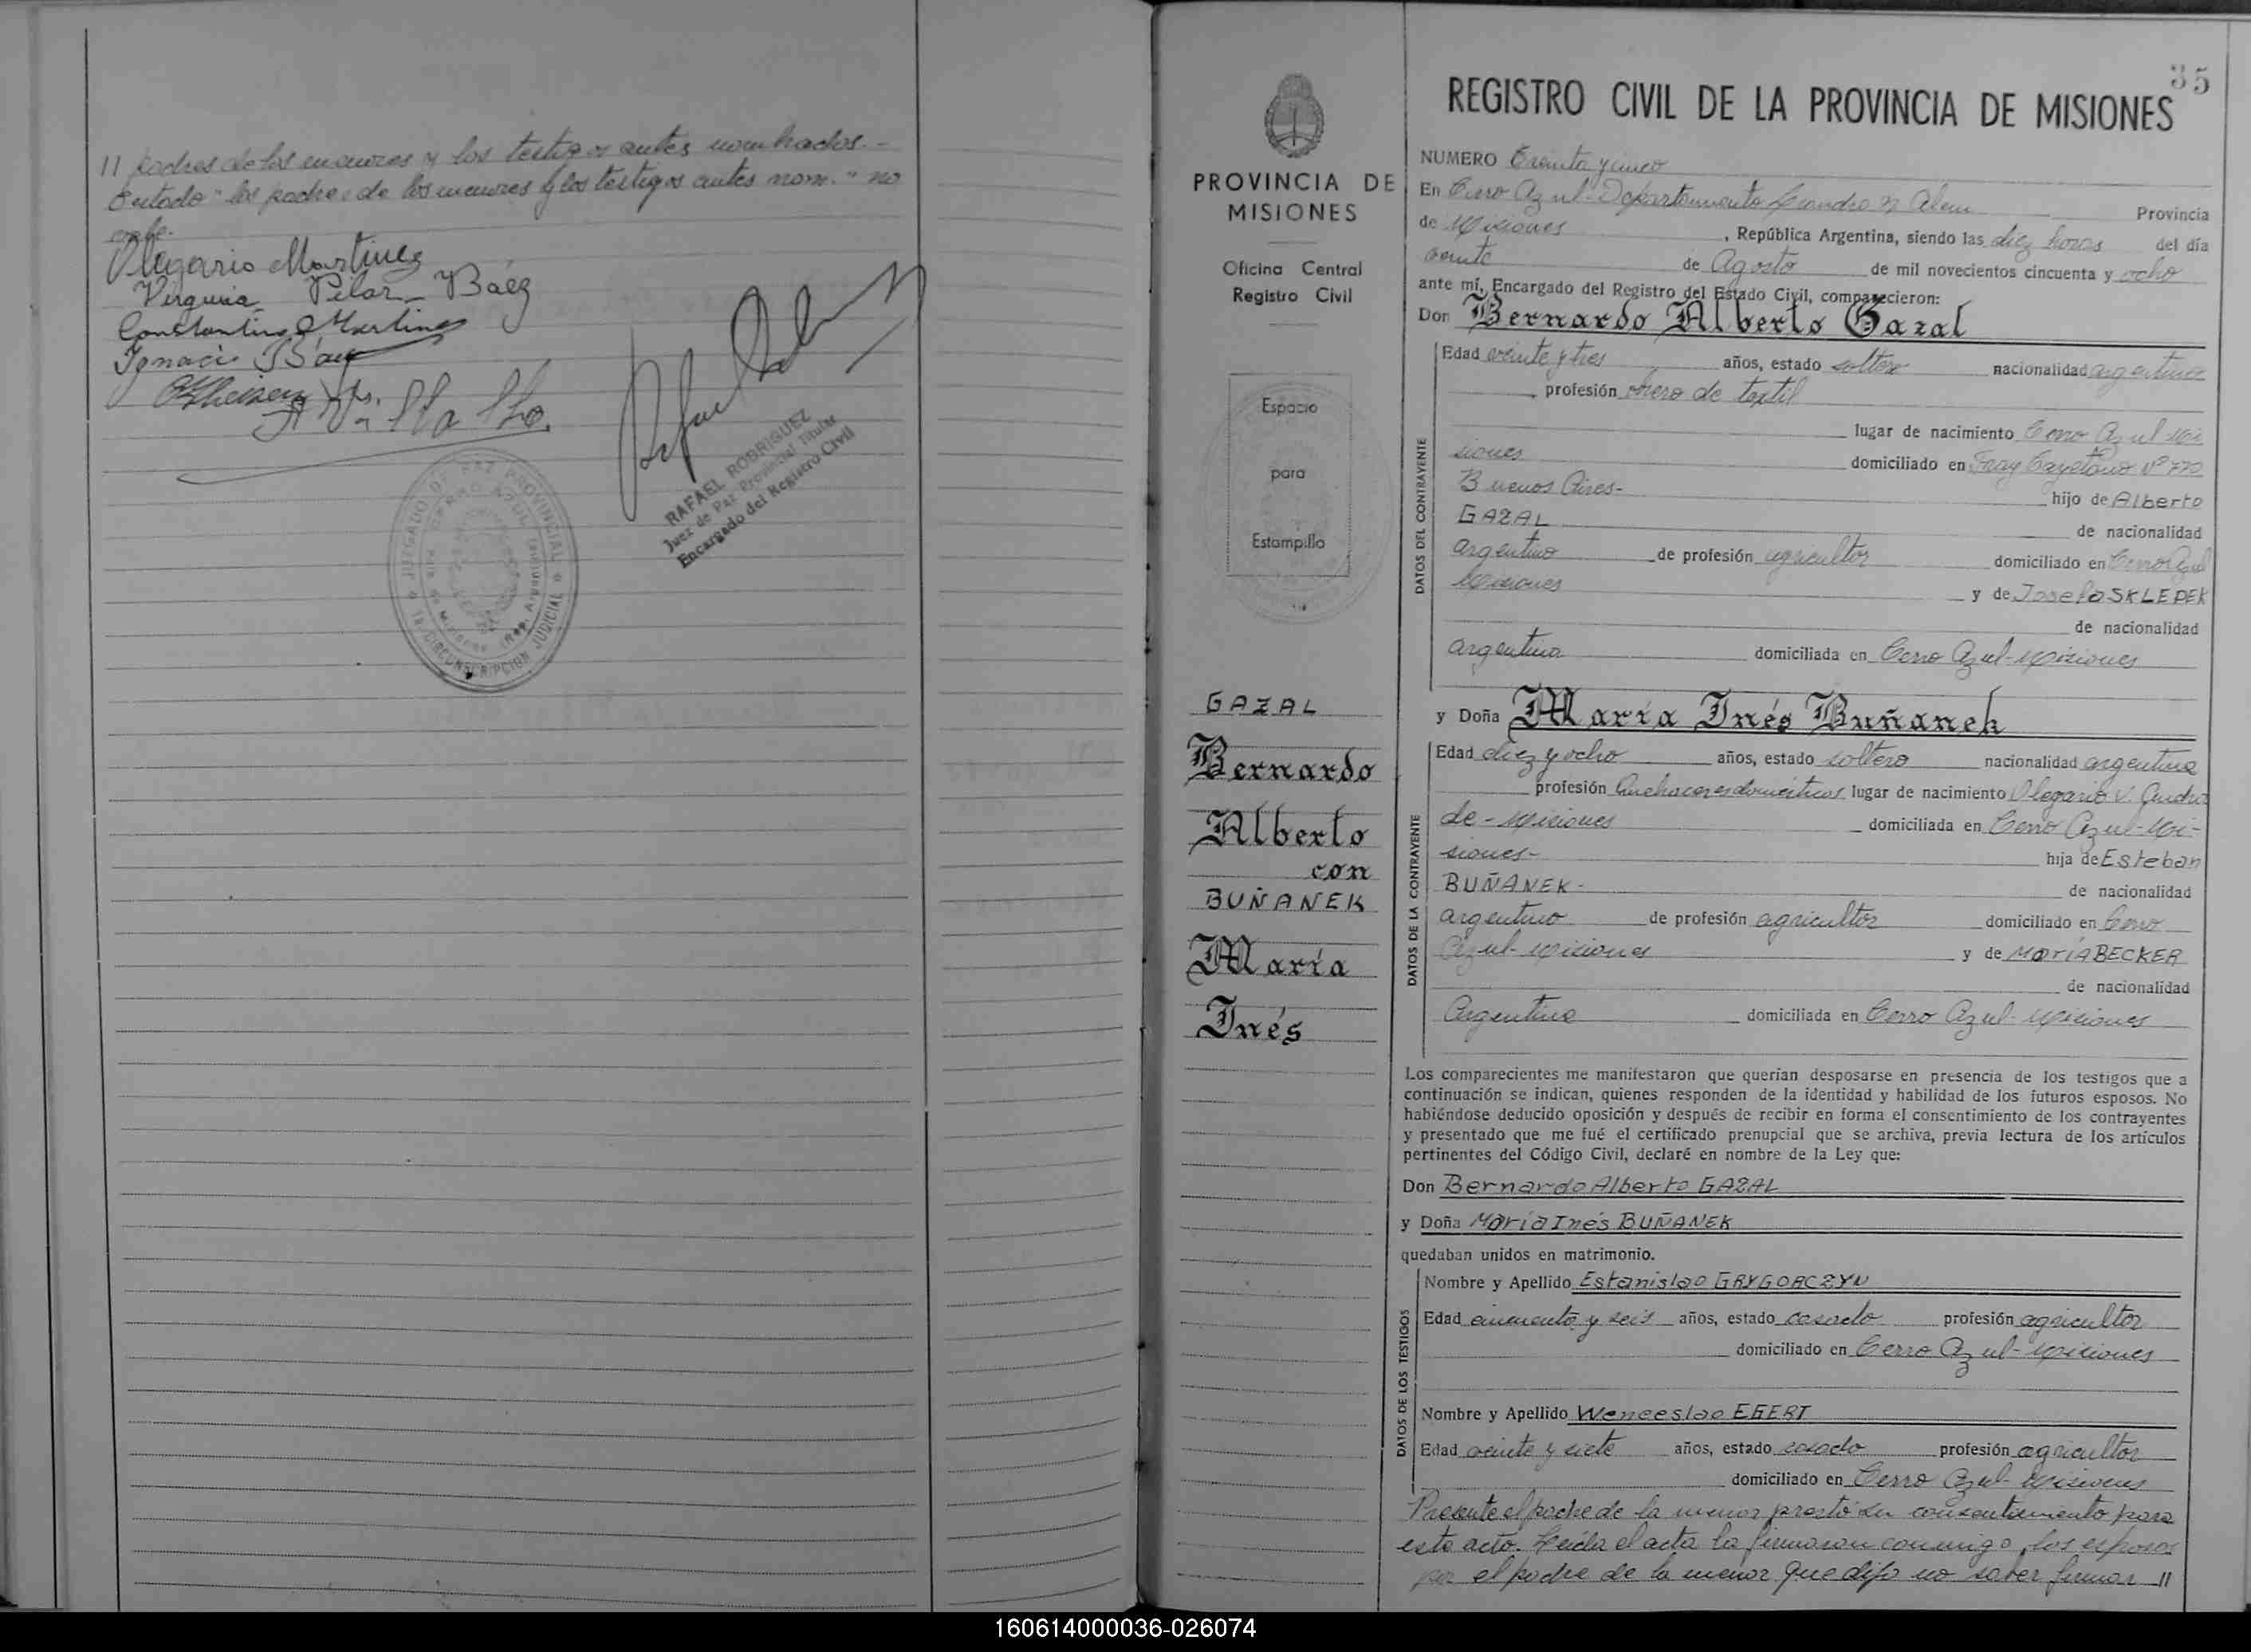 // padres de los menores y los testigos antes nombrados.-
Entado "los padres de los menores y los testigos antes nom." no
vale.
Olegario Martinez
Virginia Pilar Báez
Constantino Martinez
Ignacio Báez
RAFAEL RODRIGUEZ
Juez de Paz Provincial Titular
Encargado del Registro Civil
JUZGADO DE PAZ PROVINCIAL
CERRO AZUL
1a. CIRCUNSCRIPCION JUDICIAL
35
PROVINCIA DE
MISIONES
Oficina Central
Registro Civil
Espacio
para
Estampilla
GAZAL
Bernardo
Alberto
con
BUÑANEK
María
Inés
REGISTRO CIVIL DE LA PROVINCIA DE MISIONES
NUMERO Treinta y cinco
En Cerro Azul-Departamento Leandro N Alem Provincia
de Misiones, República Argentina, siendo las diez horas del día
veinte de Agosto de mil novecientos cincuenta y ocho
ante mí, Encargado del Registro del Estado Civil, comparecieron:
Don Bernardo Alberto Gazal
DATOS DEL CONTRAYENTE
Edad veinte y tres años, estado soltero nacionalidad argentino
profesión obrero de textil
lugar de nacimiento Cerro Azul Mi
siones domiciliado en Fray Cayetano Nº 770
Buenos Aires- hijo de Alberto
GAZAL de nacionalidad
argentino de profesión agricultor domiciliado en Cerro Azul
Misiones y de Josefa SKLEPEK
de nacionalidad
argentina domiciliada en Cerro Azul-Misiones
y Doña María Inés Buñanek
DATOS DE LA CONTRAYENTE
Edad diez y ocho años, estado soltera nacionalidad argentina
profesión Quehaceres domésticos lugar de nacimiento Olegario V. Andra
de-Misiones domiciliada en Cerro Azul-Mi-
siones- hija de Esteban
BUÑANEK- de nacionalidad
argentino de profesión agricultor domiciliado en Cerro
Azul-Misiones y de María BECKER
de nacionalidad
Argentina domiciliada en Cerro Azul-Misiones
Los comparecientes me manifestaron que querían desposarse en presencia de los testigos que a
continuación se indican, quienes responden de la identidad y habilidad de los futuros esposos. No
habiéndose deducido oposición y después de recibir en forma el consentimiento de los contrayentes
y presentado que me fué el certificado prenupcial que se archiva, previa lectura de los artículos
pertinentes del Código Civil, declaré en nombre de la Ley que:
Don Bernardo Alberto GAZAL
y Doña María Inés BUÑANEK
quedaban unidos en matrimonio.
DATOS DE LOS TESTIGOS
Nombre y Apellido Estanislao GRYGORCZYN
Edad cincuenta y seis años, estado casado profesión agricultor
domiciliado en Cerro Azul-Misiones
Nombre y Apellido Wenceslao EGERT
Edad veinte y siete años, estado casado profesión agricultor
domiciliado en Cerro Azul-Misiones
Presente el padre de la menor prestó su consentimiento para
este acto. Leída el acta la firmaron conmigo, los esposos
por el padre de la menor que dijo no saber firmar //
160614000036-026074